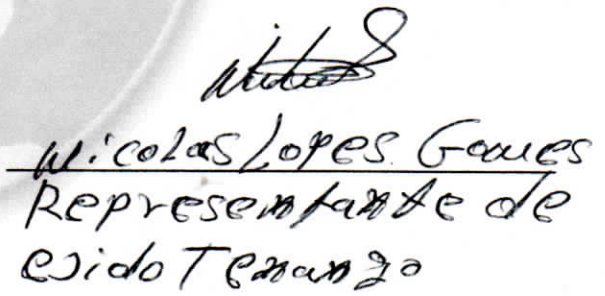 Nicolas Lopes Gomes
Representante de
esido Tenango